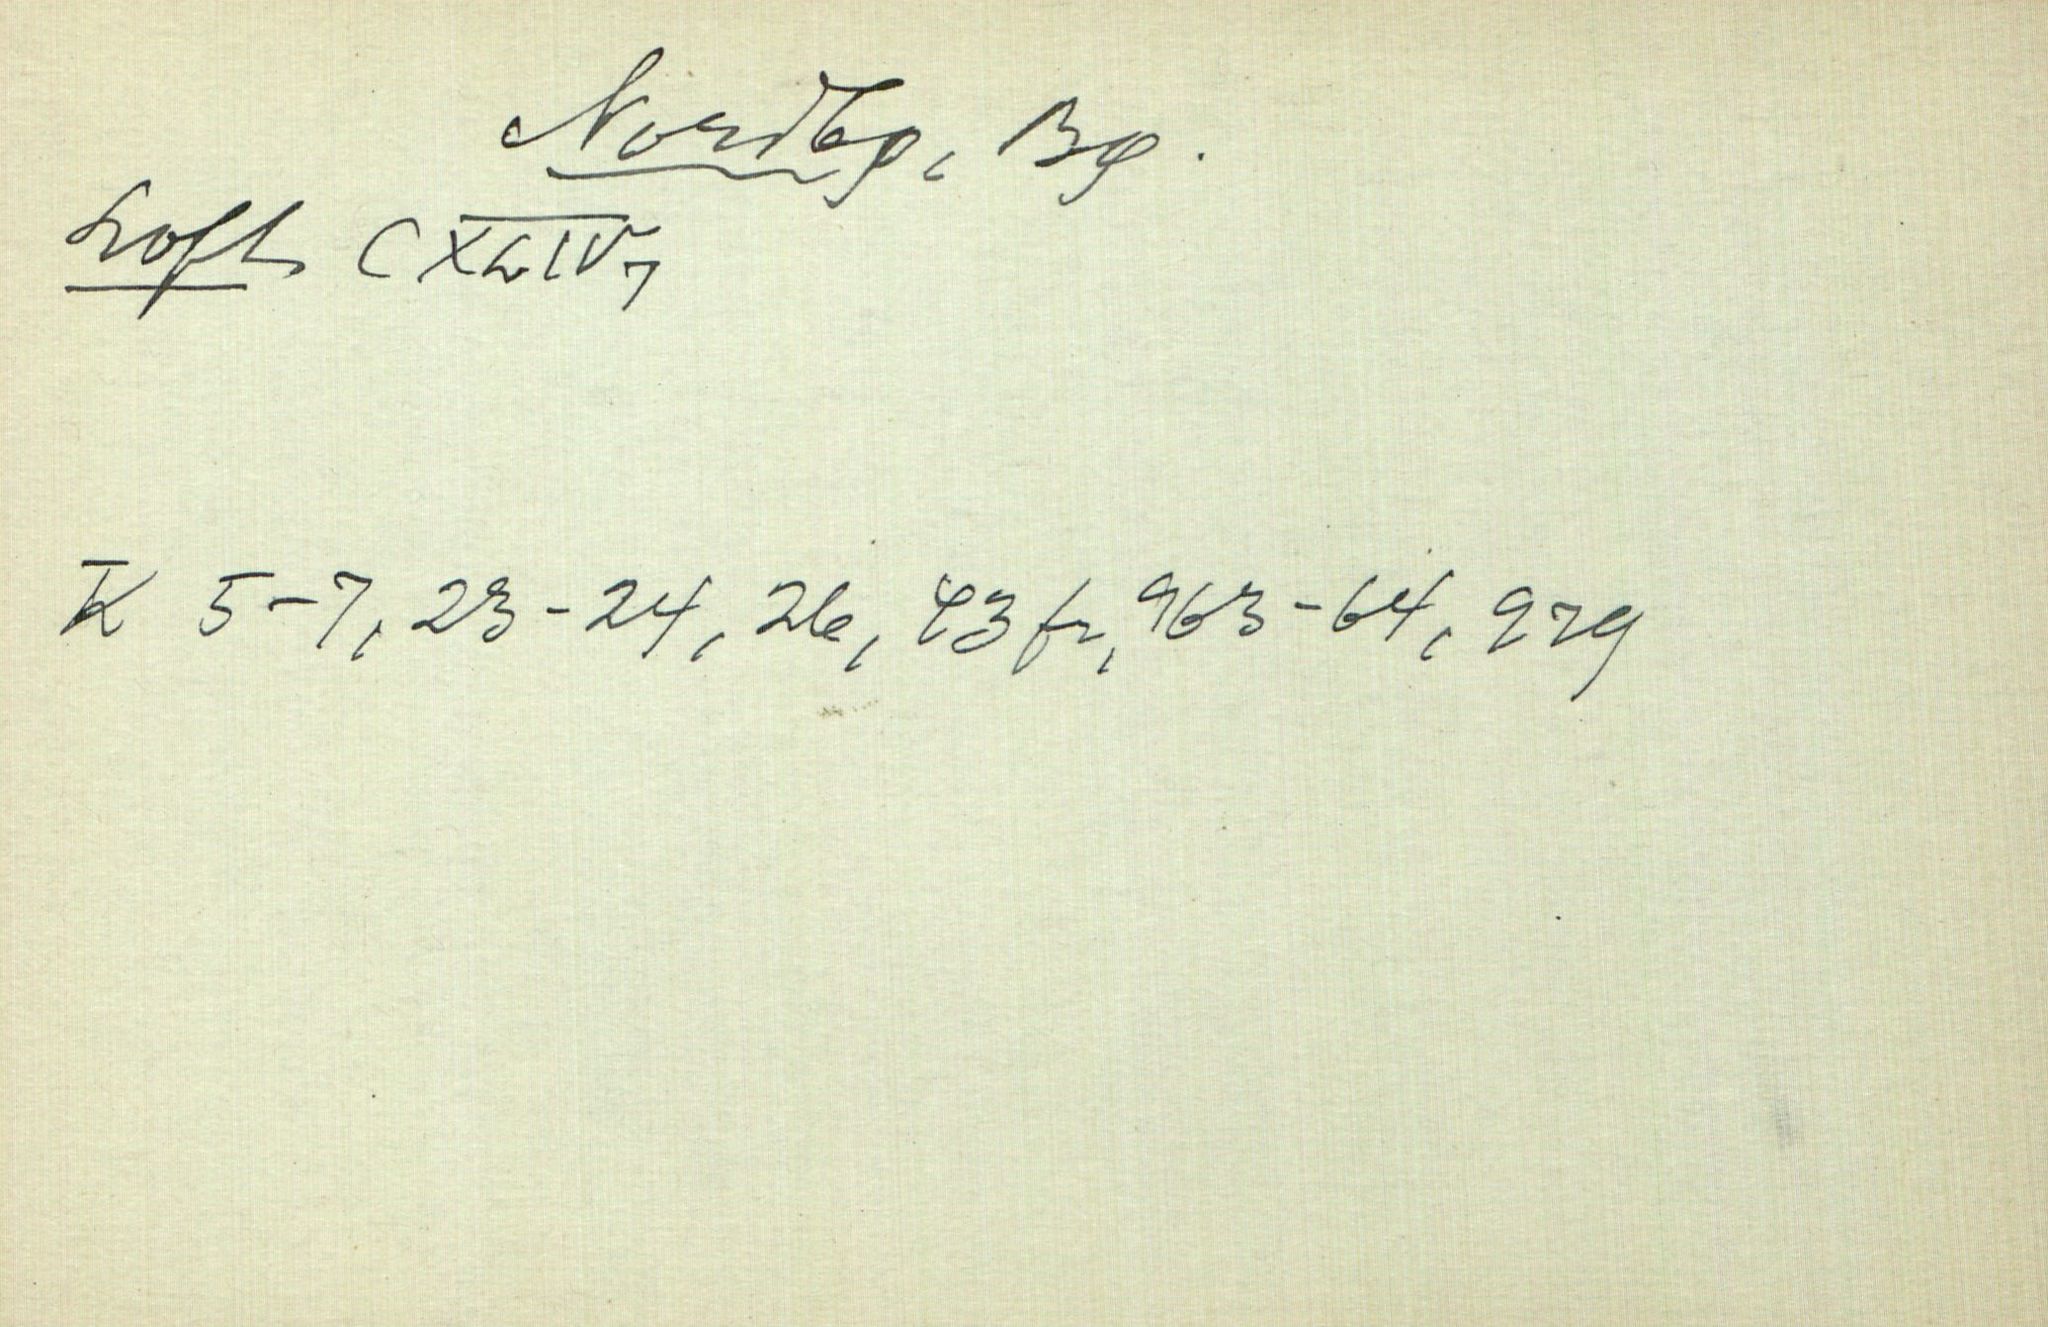 Nordbg, Bg.
Loft, CXLIV7
K 5-7, 23-24, 26, 43 fr, 963-64, 979